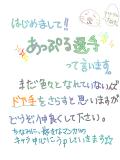 はじめまして!!
あっぷる選手
って言います。
まだ色々となれていないんで
ドヤ顔をさらすと思いますが
どうぞ仲良くして下さい。
ちなみに、好きなマンガの
キャラ中心にうpしていきます☆